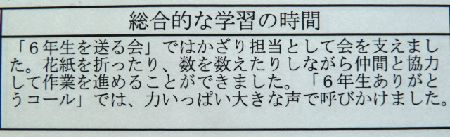 総合的な学習の時間
「６年生を送る会」ではかざり担当として会を支えまし
た。花紙を折ったり、数を数えたりしながら仲間と協力
して作業を進めることができました。「６年生ありがと
うコール」では、力いっぱい大きな声で呼びかけました。